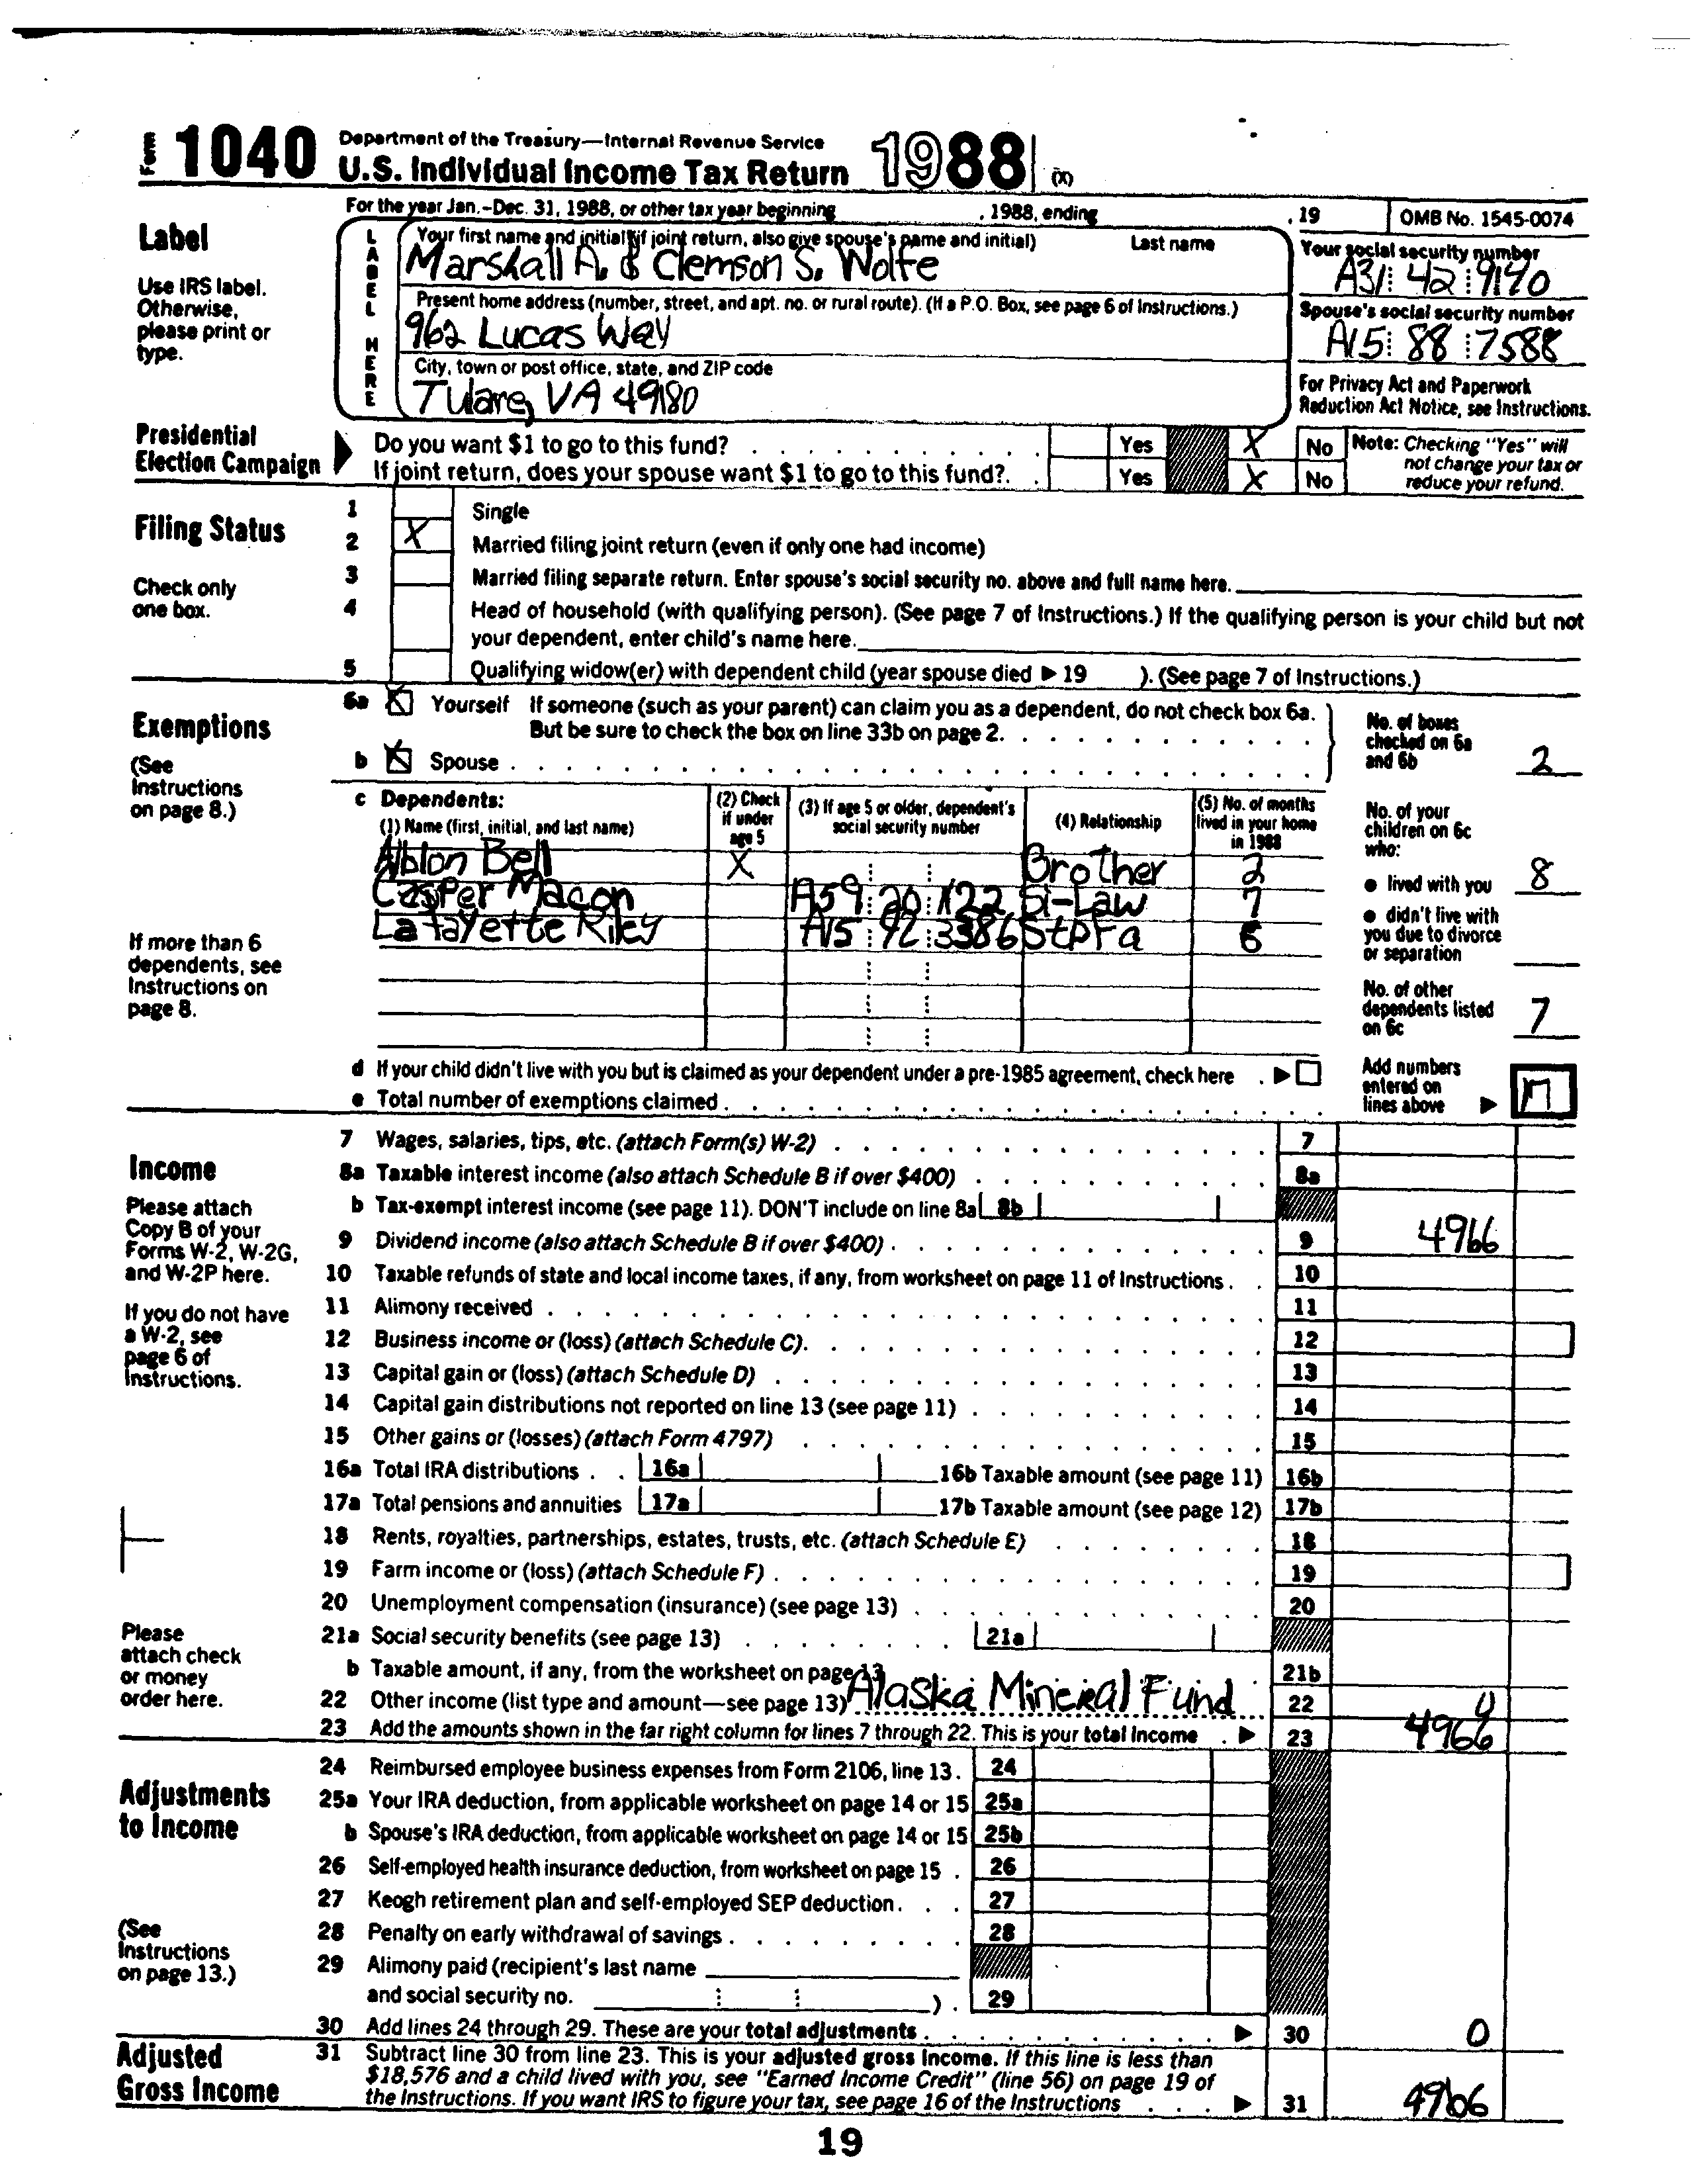 Form 1040 Department of the Treasury—Internal Revenue Service
U.S. Individual Income Tax Return 1988 (X)
For the year Jan.–Dec. 31, 1988, or other tax year beginning , 1988, ending , 19 OMB No. 1545-0074
Label
Use IRS label.
Otherwise,
please print or
type.
LABEL HERE
Your first name and initial (if joint return, also give spouse's name and initial) Last name
Marshall A. & Clemson S. Wolfe
Your social security number
A31 42 9190
Present home address (number, street, and apt. no. or rural route). (If a P.O. Box, see page 6 of Instructions.)
962 Lucas Way
Spouse's social security number
A15 88 7588
City, town or post office, state, and ZIP code
Tulare, VA 49180
For Privacy Act and Paperwork
Reduction Act Notice, see Instructions.
Presidential
Election Campaign
Do you want $1 to go to this fund? Yes X No
If joint return, does your spouse want $1 to go to this fund? Yes X No
Note: Checking "Yes" will
not change your tax or
reduce your refund.
Filing Status
Check only
one box.
1 Single
2 X Married filing joint return (even if only one had income)
3 Married filing separate return. Enter spouse's social security no. above and full name here.
4 Head of household (with qualifying person). (See page 7 of Instructions.) If the qualifying person is your child but not
your dependent, enter child's name here.
5 Qualifying widow(er) with dependent child (year spouse died ▶ 19 ). (See page 7 of Instructions.)
Exemptions
(See
Instructions
on page 8.)
6a X Yourself If someone (such as your parent) can claim you as a dependent, do not check box 6a.
But be sure to check the box on line 33b on page 2.
b X Spouse
No. of boxes
checked on 6a
and 6b 2
c Dependents:
(1) Name (first, initial, and last name)
(2) Check
if under
age 5
(3) If age 5 or older, dependent's
social security number
(4) Relationship
(5) No. of months
lived in your home
in 1988
Albion Bell X Brother 2
Casper Macon A59 20 1122 Si-Law 7
Lafayette Riley A15 92 3386 StpFa 6
No. of your
children on 6c
who:
● lived with you 8
● didn't live with
you due to divorce
or separation
No. of other
dependents listed
on 6c 7
If more than 6
dependents, see
Instructions on
page 8.
d If your child didn't live with you but is claimed as your dependent under a pre-1985 agreement, check here ▶
e Total number of exemptions claimed
Add numbers
entered on
lines above ▶ 17
Income
Please attach
Copy B of your
Forms W-2, W-2G,
and W-2P here.
If you do not have
a W-2, see
page 6 of
Instructions.
7 Wages, salaries, tips, etc. (attach Form(s) W-2) 7
8a Taxable interest income (also attach Schedule B if over $400) 8a
b Tax-exempt interest income (see page 11). DON'T include on line 8a 8b
9 Dividend income (also attach Schedule B if over $400) 9 4966
10 Taxable refunds of state and local income taxes, if any, from worksheet on page 11 of Instructions 10
11 Alimony received 11
12 Business income or (loss) (attach Schedule C) 12
13 Capital gain or (loss) (attach Schedule D) 13
14 Capital gain distributions not reported on line 13 (see page 11) 14
15 Other gains or (losses) (attach Form 4797) 15
16a Total IRA distributions 16a 16b Taxable amount (see page 11) 16b
17a Total pensions and annuities 17a 17b Taxable amount (see page 12) 17b
18 Rents, royalties, partnerships, estates, trusts, etc. (attach Schedule E) 18
19 Farm income or (loss) (attach Schedule F) 19
20 Unemployment compensation (insurance) (see page 13) 20
21a Social security benefits (see page 13) 21a
b Taxable amount, if any, from the worksheet on page 13 21b
22 Other income (list type and amount—see page 13) Alaska Mineral Fund 22 0
23 Add the amounts shown in the far right column for lines 7 through 22. This is your total income ▶ 23 4966
Please
attach check
or money
order here.
Adjustments
to Income
(See
Instructions
on page 13.)
24 Reimbursed employee business expenses from Form 2106, line 13. 24
25a Your IRA deduction, from applicable worksheet on page 14 or 15 25a
b Spouse's IRA deduction, from applicable worksheet on page 14 or 15 25b
26 Self-employed health insurance deduction, from worksheet on page 15 26
27 Keogh retirement plan and self-employed SEP deduction 27
28 Penalty on early withdrawal of savings 28
29 Alimony paid (recipient's last name
and social security no. ) 29
30 Add lines 24 through 29. These are your total adjustments ▶ 30 0
Adjusted
Gross Income
31 Subtract line 30 from line 23. This is your adjusted gross income. If this line is less than
$18,576 and a child lived with you, see "Earned Income Credit" (line 56) on page 19 of
the Instructions. If you want IRS to figure your tax, see page 16 of the Instructions ▶ 31 4966
19